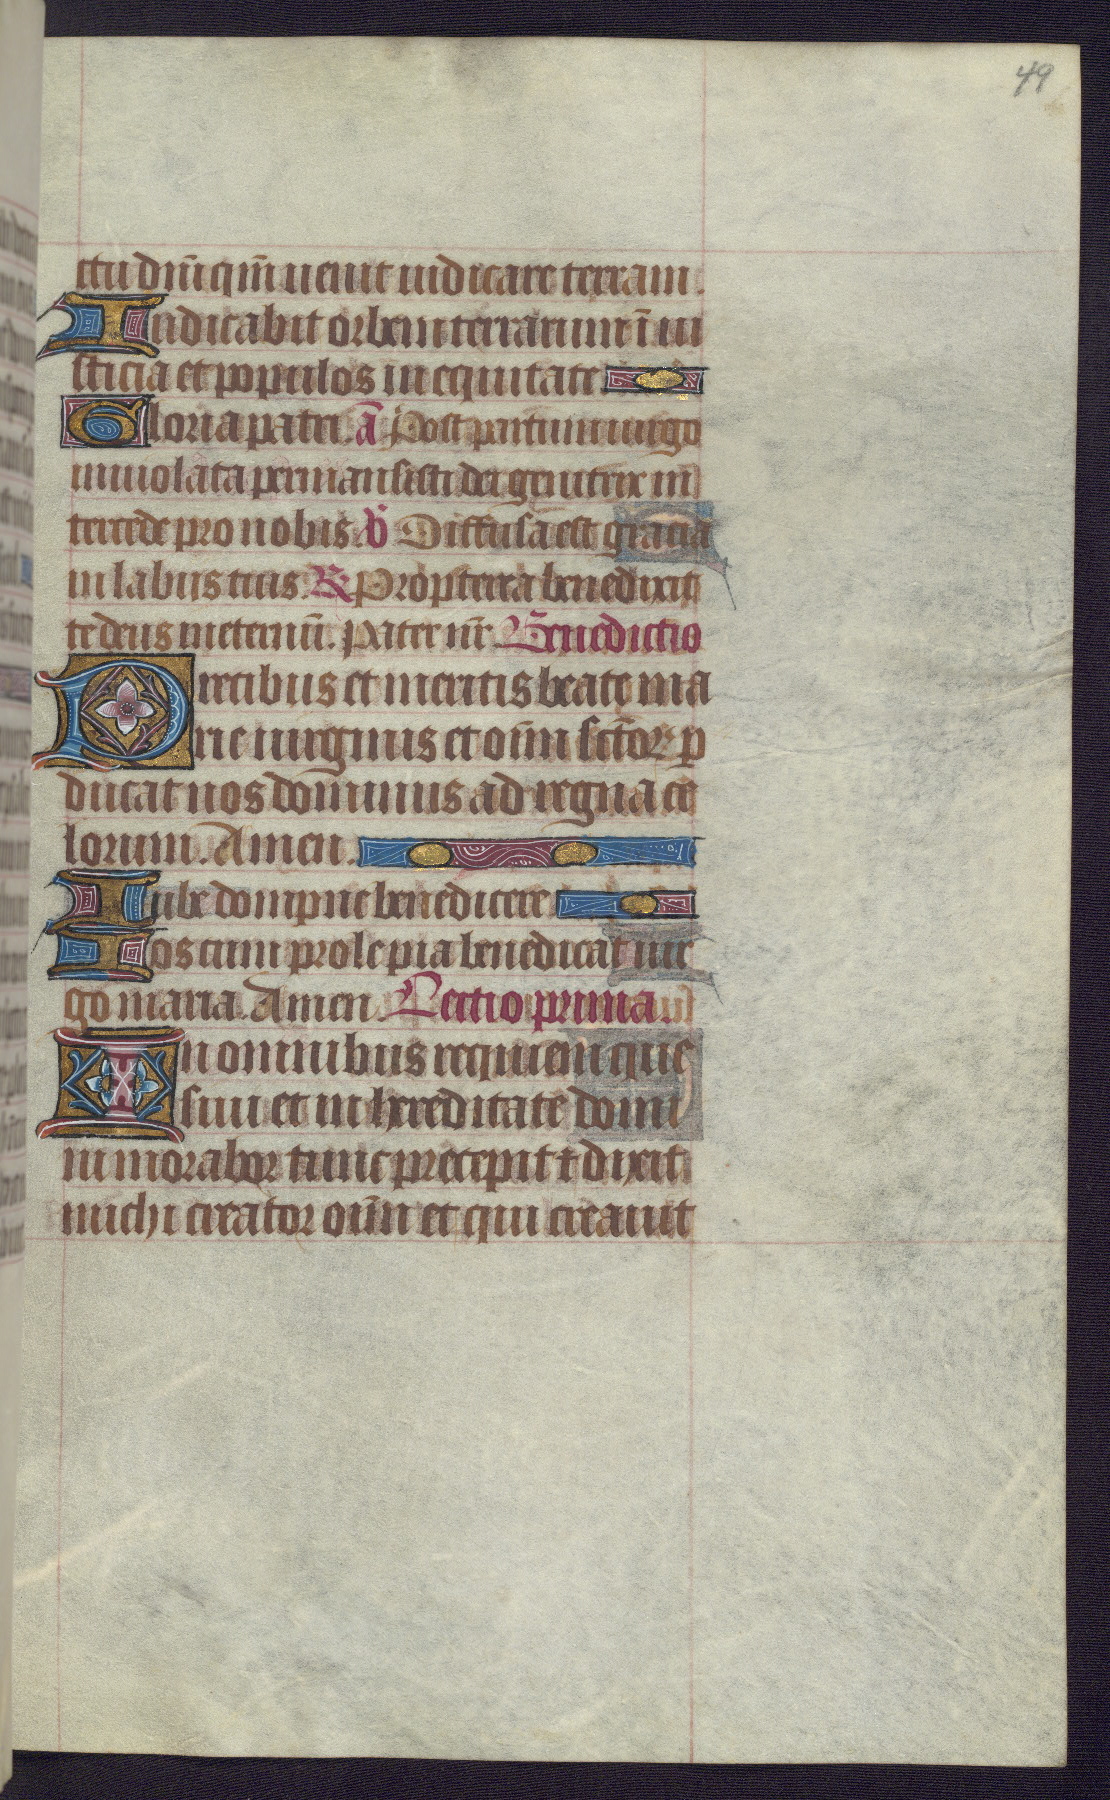 49
ctu dñi qm̄ uenit iudicare terram.
Iudicabit orbem terrarum ī iu
sticia et populos in equitate
Gloria patri. ā Post partum uirgo
inuiolata permansisti dei genitrix in
tercede pro nobis. V̄ Diffusa est gratia
in labiis tuis. R̄ Propterea benedixit
te deus in eternū. Pater nr̄. Benedictio
Precibus et meritis beate ma
rie uirginis et oīm sctōr p
ducat nos dominus ad regna ce
lorum. Amen.
Iube dompne benedicere
Nos cum prole pia benedicat uir
go maria. Amen. Lectio prima.
In omnibus requiem que
siui et in hereditate domi
ni morabor tunc precepit ⁊ dixit
michi creator oīm et qui creauit